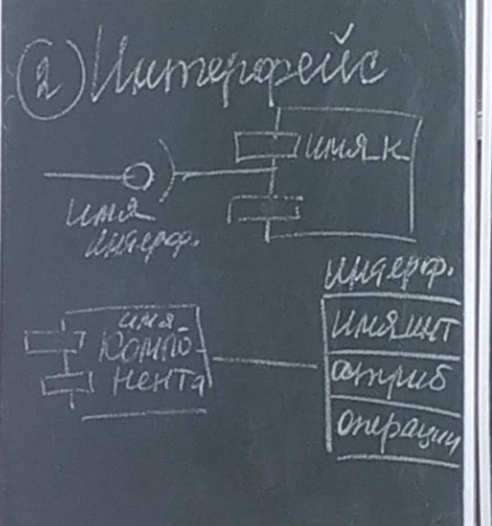 2 Интерфейс
имя_к
имя
интерф.
интерф.
имя
компо
нента
имя_инт
атриб
операции